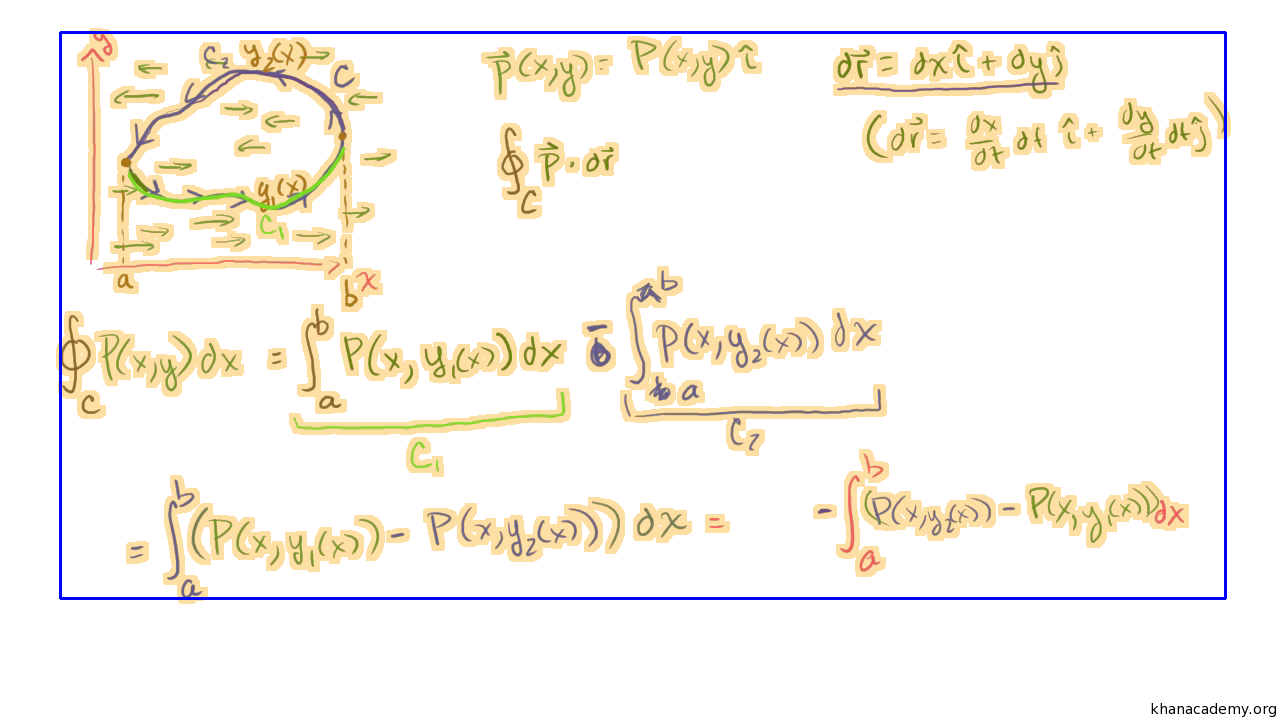 y
C₂ y₂(x) C
y₁(x)
C₁
a b x
P⃗(x,y) = P(x,y) î
dr⃗ = dx î + dy ĵ
(dr⃗ = dx/dt dt î + dy/dt dt ĵ)
∮_C P⃗ · dr⃗
∮_C P(x,y) dx = ∫_a^b P(x, y₁(x)) dx - ∫_a^b P(x, y₂(x)) dx
C₁ C₂
= ∫_a^b (P(x, y₁(x)) - P(x, y₂(x))) dx = - ∫_a^b (P(x, y₂(x)) - P(x, y₁(x))) dx
khanacademy.org